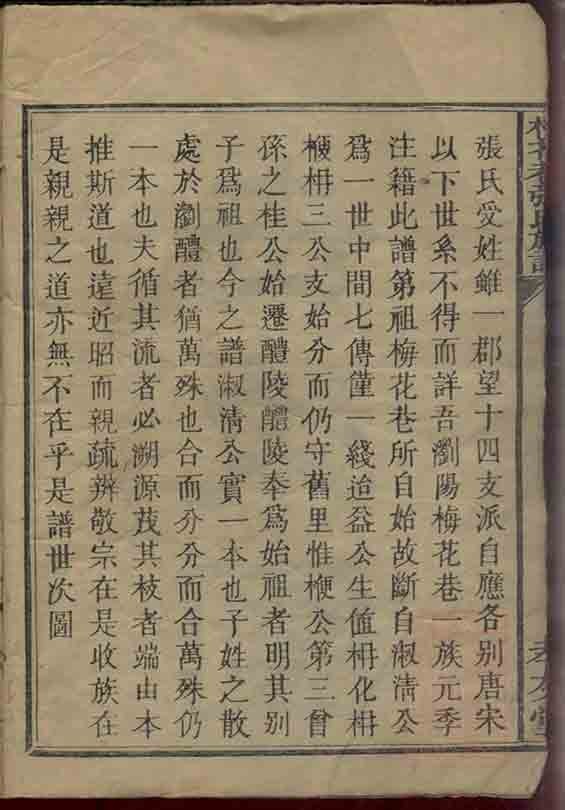 張氏受姓雖一郡望十四支派自應各別唐宋
以下世系不得而詳吾瀏陽梅花巷一族元季
注籍此譜第祖梅花巷所自始故斷自淑清公
爲一世中間七傳僅一綫迨益公生値枏化枏
楩枏三公支始分而仍守舊里惟楩公第三曾
孫之桂公始遷醴陵醴陵奉爲始祖者明其別
子爲祖也今之譜淑清公實一本也子姓之散
處於瀏醴者猶萬殊也合而分分而合萬殊仍
一本也夫循其流者必溯源茂其枝者端由本
推斯道也遠近昭而親疏辨敬宗在是收族在
是親親之道亦無不在乎是譜世次圖